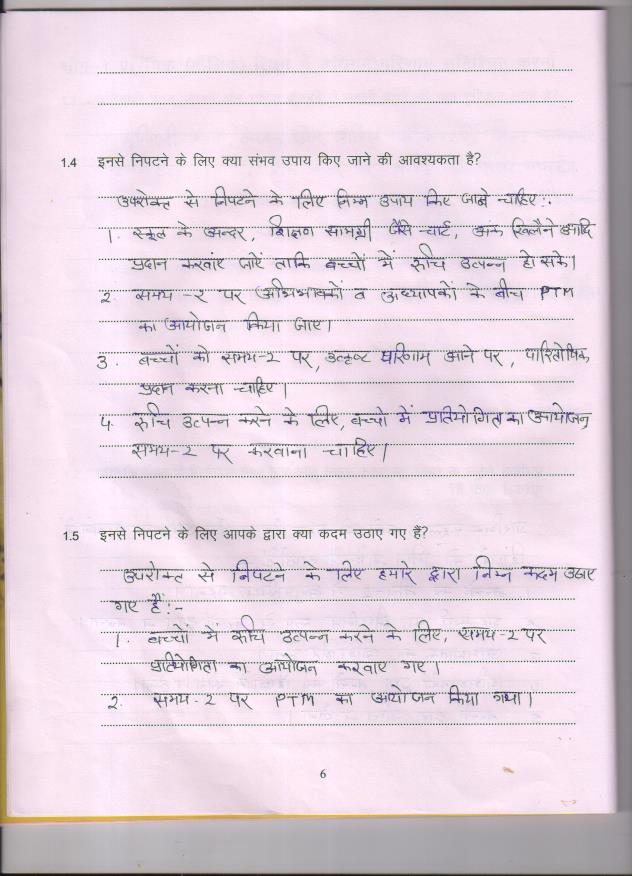 1.4 इनसे निपटने के लिए क्या संभव उपाय किए जाने की आवश्यकता है?
उपरोक्त से निपटने के लिए निम्न उपाय किए जाने चाहिए:-
1. स्कूल के अन्दर, शिक्षण सामग्री जैसे चार्ट, अंक खिलौने आदि
प्रदान करवाए जाएं ताकि बच्चों में रूचि उत्पन्न हो सके।
2 समय-2 पर अभिभावकों व अध्यापकों के बीच PTM
का आयोजन किया जाए।
3. बच्चों को समय-2 पर, उत्कृष्ट परिणाम आने पर, पारितोषिक
प्रदान करना चाहिए।
4. रूचि उत्पन्न करने के लिए, बच्चो में प्रतियोगिता का आयोजन,
समय-2 पर करवाना चाहिए।
1.5 इनसे निपटने के लिए आपके द्वारा क्या कदम उठाए गए हैं?
उपरोक्त से निपटने के लिए हमारे द्वारा निम्न कदम उठाए
गए हैं:-
1. बच्चों में रूचि उत्पन्न करने के लिए, समय-2 पर
प्रतियोगिता का आयोजन करवाए गए।
2. समय-2 पर PTM का आयोजन किया गया।
6